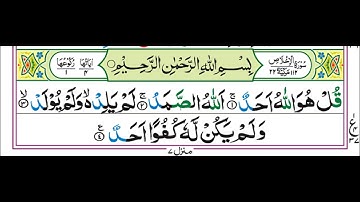 سُوْرَةُ الْاِخْلَاصِ ١١٢ مَكِّيَّةٌ ٢٢
بِسْمِ اللّٰهِ الرَّحْمٰنِ الرَّحِيْمِ
اٰيَاتُهَا ٤ رُكُوْعُهَا ١
قُلْ هُوَ اللّٰهُ اَحَدٌ ۚ﴿١﴾ اَللّٰهُ الصَّمَدُ ۚ﴿٢﴾ لَمْ يَلِدْ ۙ۬ وَلَمْ يُوْلَدْ ۙ﴿٣﴾
وَلَمْ يَكُنْ لَّهٗ كُفُوًا اَحَدٌ ﴿٤﴾
ع
٣٧
منزل ٧